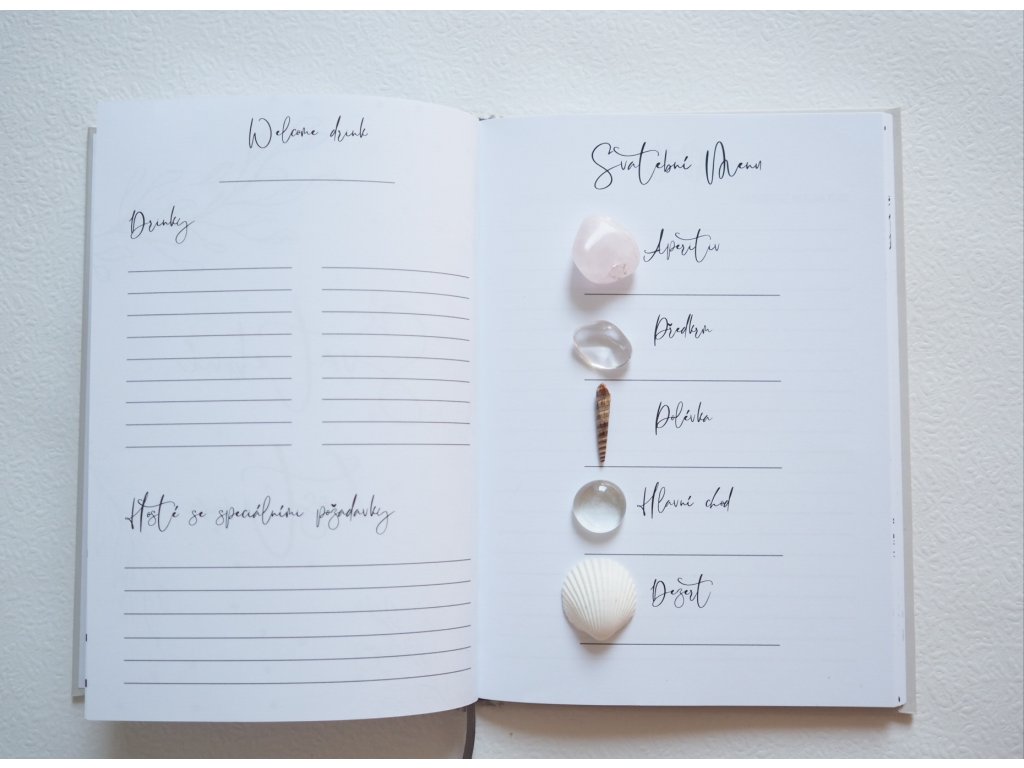 Welcome drink
Drinky
Hosté se speciálními požadavky
Svatební Menu
Aperitiv
Předkrm
Polévka
Hlavní chod
Dezert